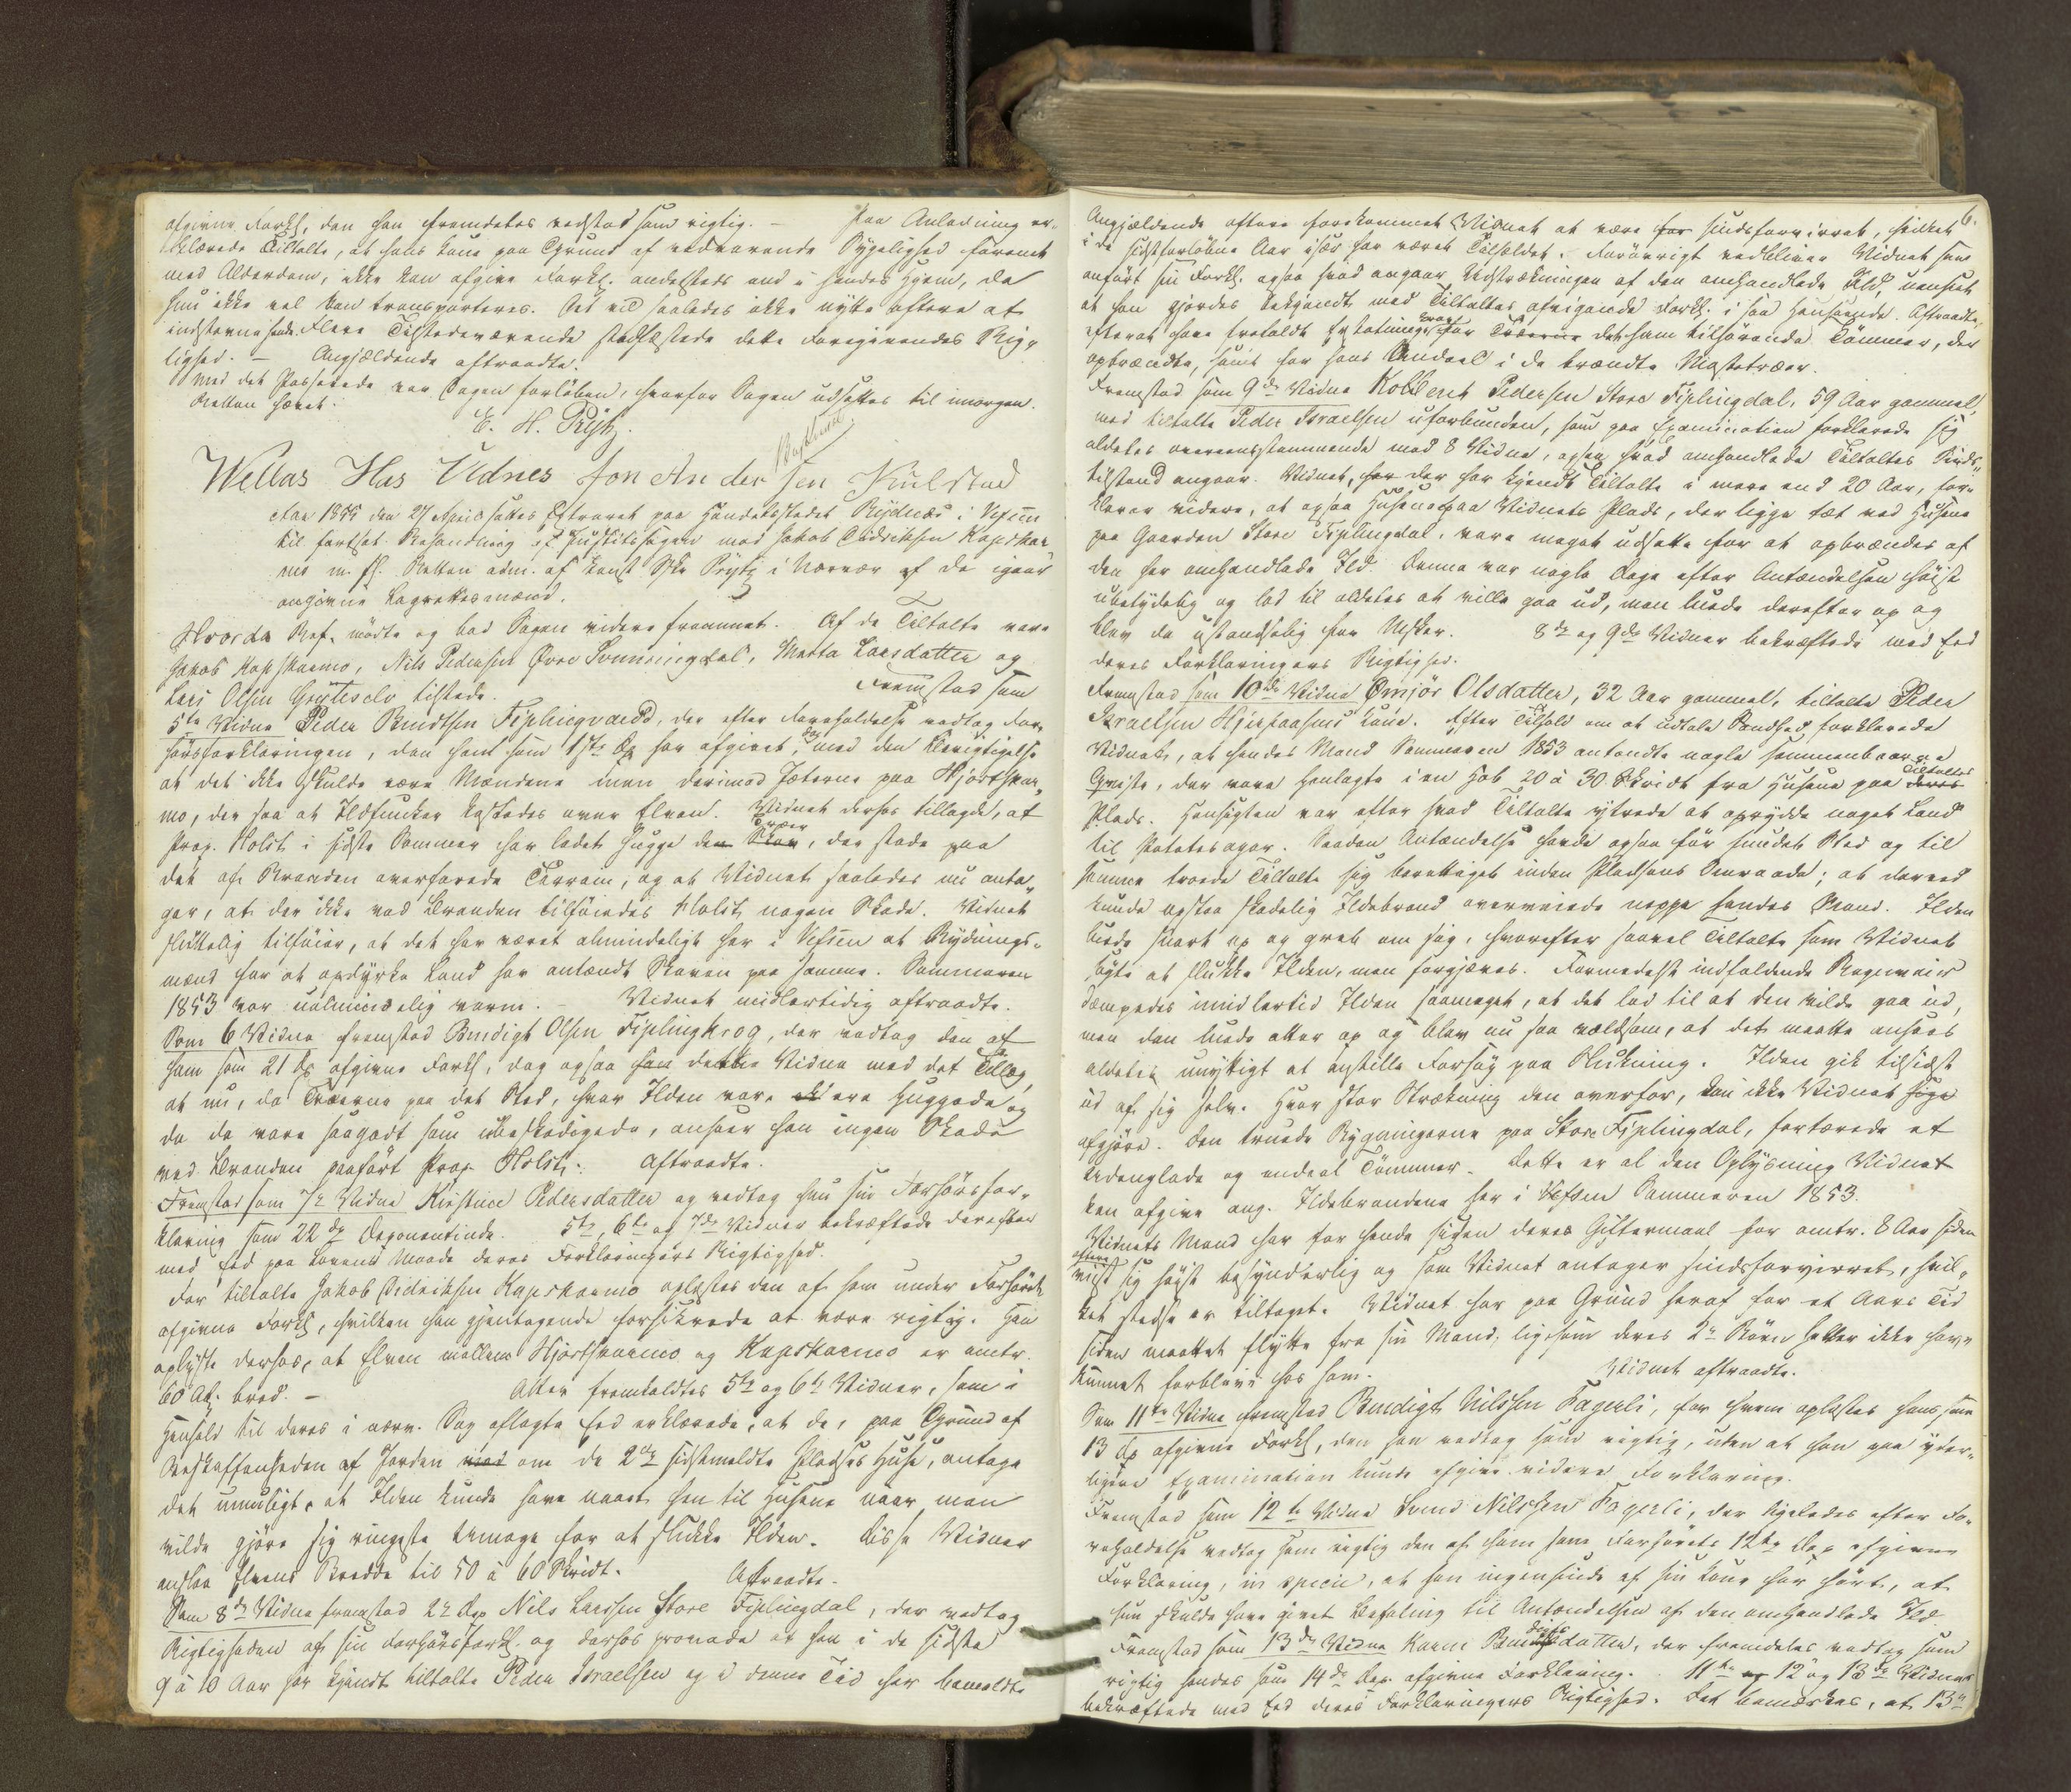 afgivne Forkl, den han fremdeles vedstod som rigtig. – Paa Anledning er-
klærede Tiltalte, at hans Kone paa Grund af vedvarende Sygelighed forenet
med Alderdom, ikke kan afgive Forkl. andetsteds end i hendes Hjem, da
hun ikke vel kan transporteres. Det vil saaledes ikke nytte oftere at
indstevne hende. Flere Tilstedeværende stadfæstede dette Foregivendes Rig-
tighed. – Angjældende aftraadte.
Med det Passerede var Dagen forløben, hvorfor Sagen udsattes til imorgen.
Retten hævet.
E. H. Rijtz.
Wellas Has Vidnes Jon An der sen Kulstad
Aar 1855 den 27 April sattes Extraret paa Handelsstedet Rijdnæs i Vefsen
til fortsat Behandling af Justitssagen mod Jakob Didriksen Kapskar-
mo m. fl. Retten adm. af const Skr Prijtz i Nærvær af de igaar
angivne Lagrettesmænd.
Hvorda Ref. mødte og bad Sagen videre fremmet. Af de Tiltalte vare
Jakob Kapskarmo, Nils Pedersen Øvre Svenningdal, Marta Larsdatter og
Lars Olsen Gryteselv tilstede. Fremstod som
5te Vidne Peder Bendtsen Fiplingvold, der efter Foreholdelse vedtog For-
hørsforklaringen, den han som 1ste Dep har afgivet, dog med den Berigtigelse
at det ikke skulde være Mændene men derimod Jæterne paa Hjortskar-
mo, der saa at Ildfunker kastedes over Elven. Vidnet derhos tillagde, at
Prop. Holst i sidste Sommer har ladet hugge den Træer, der stode paa
det af Branden overfarede Terrain, og at Vidnet saaledes nu anta-
ger, at der ikke ved Branden tilføiedes Holst nogen Skade. Vidnet
sluttelig tilføier, at det har været almindeligt her i Vefsen at Rydnings-
mænd for at opdyrke Land har antændt Skoven paa samme. Sommeren
1853 var ualmindelig varm. – Vidnet midlertidig aftraadte.
Som 6 Vidne fremstod Bendigt Olsen Fiplingkrog, der vedtog den af
ham som 21 Dp afgivne Forkl, dog ogsaa dette Vidne med det Tillæg,
at nu, da Træerne paa det Sted, hvor Ilden vare ere huggede og
da de vare saagodt som ubeskadigede, anseer han ingen Skade
ved Branden paaført Prop. Holst. Aftraadte.
Fremstod som 7de Vidne Kirstine Pedersdatter og vedtog hun sin Forhørsfor-
klaring som 22de Deponentinde. 5te, 6te og 7de Vidner bekræftede derefter
med Ed paa Lovens Maade deres Forklaringers Rigtighed.
For tiltalte Jakob Didriksen Kapskarmo oplæstes den af ham under Forhøret
afgivne Forkl, hvilken han gjentagende forsikrede at være rigtig. Han
oplyste derhos, at Elven mellem Hjortskarmo og Kapskarmo er omtr.
60 Al. bred. – Atter fremkaldtes 5te og 6te Vidner, som i
Henhold til deres i nærv. Sag aflagte Ed erklærede, at de, paa Grund af
Beskaffenheden af Jorden om de 2de sidstmeldte Pladses Huse, antage
det umuligt, at Ilden kunde have naaet hen til Husene naar man
vilde gjøre sig ringeste Umage for at slukke Ilden. Disse Vidner
anslaa Elvens Bredde til 50 à 60 Skridt. Aftraadte.
Som 8de Vidne fremstod 2de Dep Nils Larssen Store Fiplingdal, der vedtog
Rigtigheden af sin Forhørsforkl. og derhos provede at han i de sidste
9 à 10 Aar har kjendt tiltalte Peder Israelsen og i denne Tid har bemeldte
6.
Angjældende oftere forekommet Vidnet at være sindsforvirret, hvilket
i de sidstforløbne Aar især har været Tilfældet. Forøvrigt vedbliver Vidnet som
anført sin Forkl. ogsaa hvad angaar Udstrækningen af den omhandlede Ild, uanset
at han gjordes bekjendt med Tiltaltes afvigende Forkl. i saa Henseende. Aftraadte,
efterat have frafaldt Erstatningskrav for det ham tilhørende Tømmer, der
opbrændte, samt for hans Andeel i de brændte Mastetræer.
Fremstod som 9de Vidne Kolbent Pedersen Store Fiplingdal, 59 Aar gammel,
med tiltalte Peder Israelsen uforbunden, som paa Examination forklarede sig
aldeles overeensstemmende med 8 Vidne, ogsaa hvad omhandlede Tiltaltes Sinds-
tilstand angaar. Vidnet, der har kjendt Tiltalte i mere end 20 Aar, for-
klarer videre, at ogsaa Husene paa Vidnets Plads, der ligge tæt ved Husene
paa Gaarden Store Fiplingdal, vare meget udsatte for at opbrændes af
den her omhandlede Ild. Denne var nogle Dage efter Antændelsen høist
ubetydelig og lod til aldeles at ville gaa ud, men luede derefter op og
blev da ustandselig for Mskr. 8de og 9de Vidner bekræftede med Ed
deres Forklaringers Rigtighed.
Fremstod som 10de Vidne Ømjør Olsdatter, 32 Aar gammel, tiltalte Peder
Israelsen Hjerpaasens Kone. Efter Tilhold om at udtale Sandhed forklarede
Vidnet, at hendes Mand Sommeren 1853 antændte nogle sammenbaarne
Qviste, der vare henlagte i en Hob 20 à 30 Skridt fra Husene paa Tiltaltes
Plads. Hensigten var efter hvad Tiltalte ytrede at oprydde noget Land
til Potetesager. Saadan Antændelse havde ogsaa før fundet Sted og til
samme troede Tiltalte sig berettiget inden Pladsens Omraade; at derved
kunde opstaa skadelig Ildebrand overveiede neppe hendes Mand. Ilden
luede snart op og greb om sig, hvorefter saavel Tiltalte som Vidnet
søgte at slukke Ilden, men forgjæves. Formedelst indfaldende Regnveir
dæmpedes imidlertid Ilden saameget, at det lod til at den vilde gaa ud,
men den luede atter op og blev nu saa voldsom, at det maatte ansees
aldeles unyttigt at anstille Forsøg paa Slukning. Ilden gik tilsidst
ud af sig selv. Hvor stor Strækning den overfór, kan ikke Vidnet sige
afgjøre. Den truede Bygningerne paa Store Fiplingdal, fortærede et
og endeel Tømmer. Dette er al den Oplysning Vidnet
kan afgive ang. Ildebrandene her i Vefsen Sommeren 1853.
Vidnets Mand har for hende siden deres Giftermaal for omtr. 8 Aar siden
oftere viist sig høist besynderlig og som Vidnet antager sindsforvirret, hvil-
ket stedse er tiltaget. Vidnet har paa Grund heraf for et Aars Tid
siden maattet flytte fra sin Mand, ligesom deres 2de Børn heller ikke have
kunnet forblive hos ham. Vidnet aftraadte.
Som 11te Vidne fremstod Bendigt Nilssen Fagerli, for hvem oplæstes hans som
13 Dp afgivne Forkl, den han vedtog som rigtig, uden at han paa yder-
ligere Examination kunde afgive videre Forklaring.
Fremstod som 12te Vidne Svend Nilssen Fagerli, der ligeledes efter Fo-
reholdelse vedtog som rigtig den af ham som Forhørets 12te Dep afgivne
Forklaring, in specie, at han ingensinde af sin Kone har hørt, at
hun skulde have givet Befaling til Antændelsen af den omhandlede Ild
Fremstod som 13de Vidne Karen Bendigtsdatter, der fremdeles vedtog som
rigtig hendes som 14de Dep. afgivne Forklaring. 11te 12 og 13de Vidner
bekræftede med Ed deres Forklaringers Rigtighed. Det bemærkes, at 13de